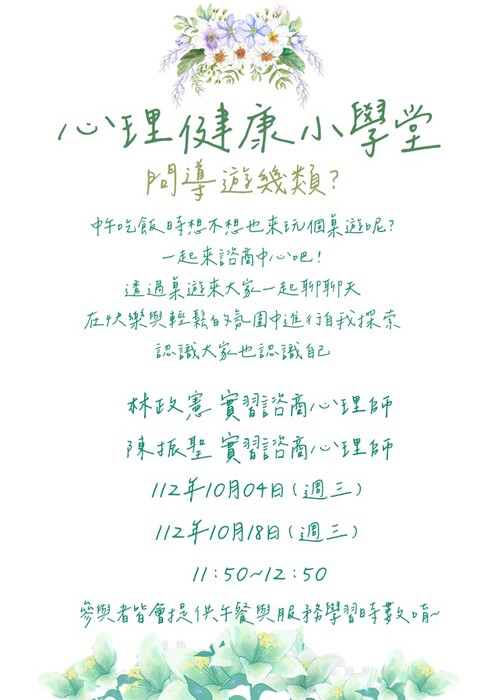 心理健康小學堂
問導遊幾類?
中午吃飯時想不想也來玩個桌遊呢?
一起來諮商中心吧!
透過桌遊來大家一起聊聊天
在快樂與輕鬆的氛圍中進行自我探索
認識大家也認識自己
林政憲 實習諮商心理師
陳振聖 實習諮商心理師
112年10月04日(週三)
112年10月18日(週三)
11:50~12:50
參與者皆會提供午餐與服務學習時數唷~